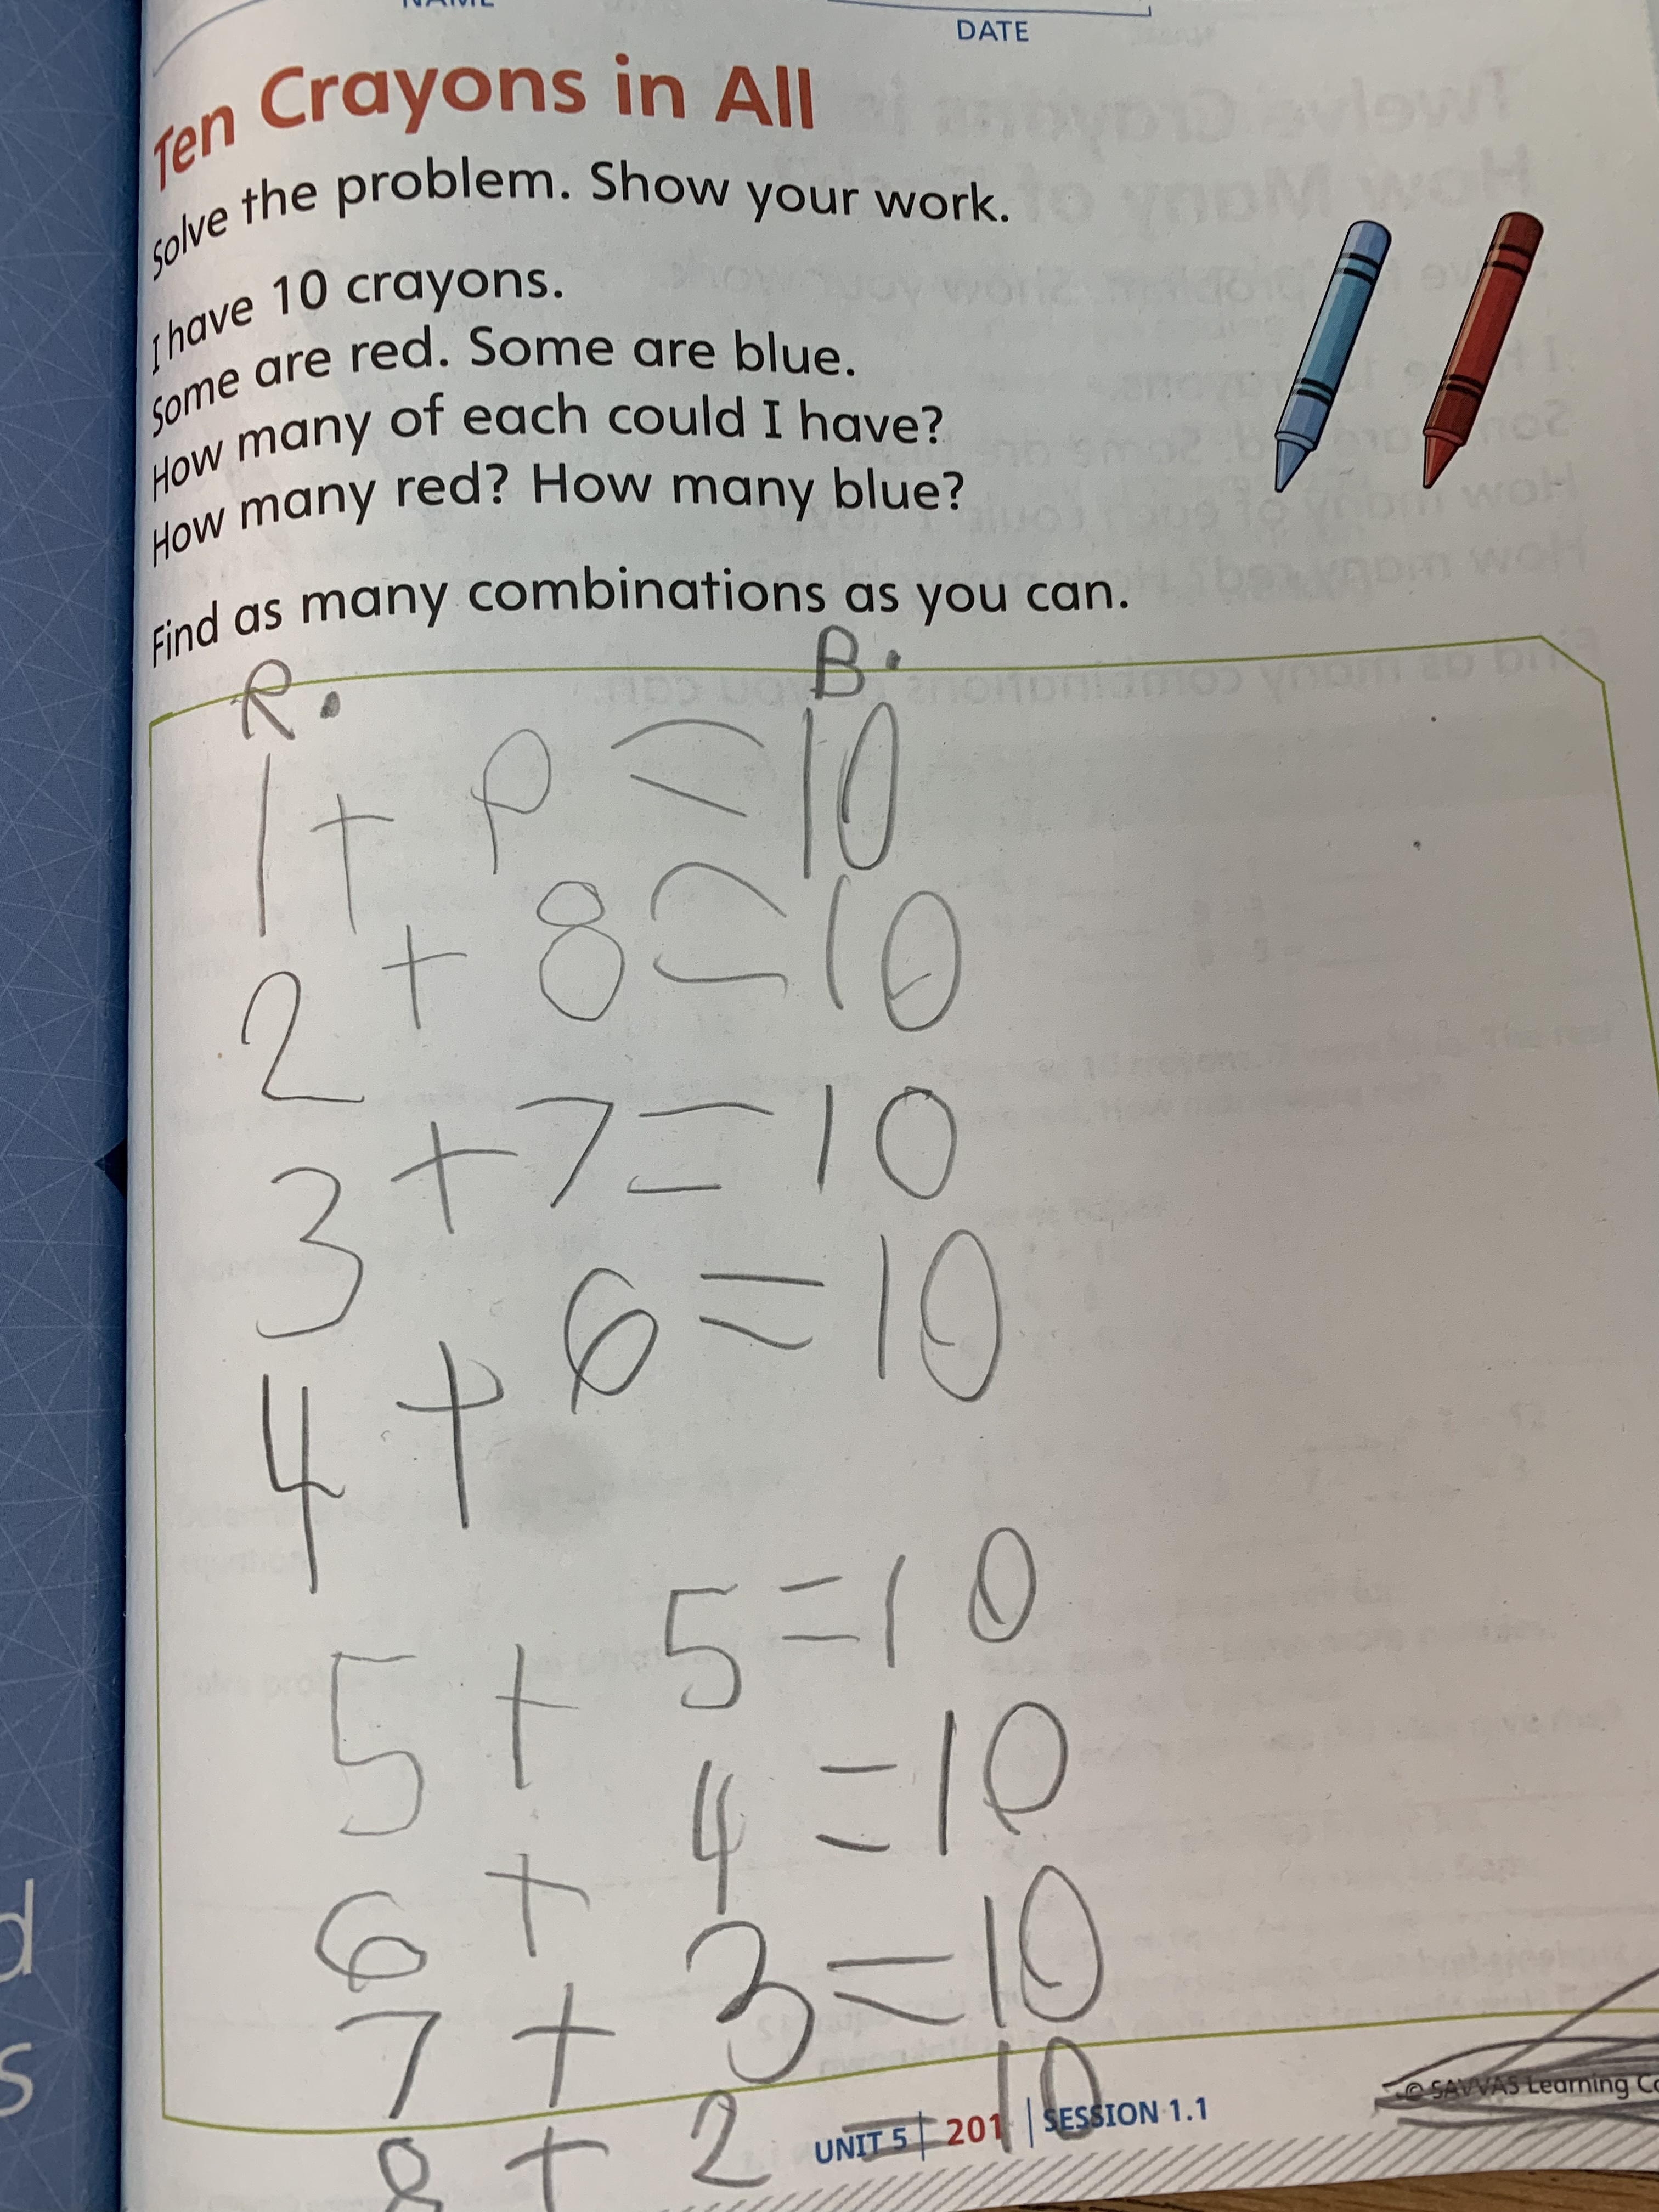 NAME
DATE
Ten Crayons in All
Solve the problem. Show your work.
I have 10 crayons.
Some are red. Some are blue.
How many of each could I have?
How many red? How many blue?
Find as many combinations as you can.
R. B.
1 + 9 = 10
2 + 8 = 10
3 + 7 = 10
4 + 6 = 10
5 + 5 = 10
6 + 4 = 10
7 + 3 = 10
8 + 2 = 10
© SAVVAS Learning Co
UNIT 5 | 201 | SESSION 1.1
d
s